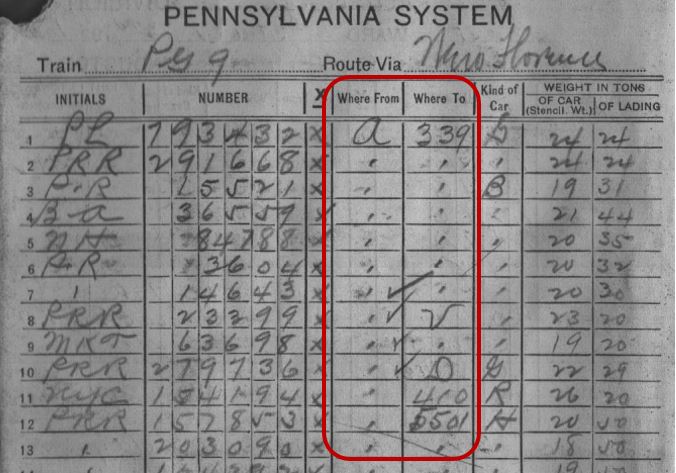 PENNSYLVANIA SYSTEM
Train PG 9 Route Via
INITIALS NUMBER X Where From Where To Kind of Car WEIGHT IN TONS
OF CAR (Stencil. Wt.) OF LADING
1 PL 793432 x A 339 G 24 24
2 PRR 291668 x " " 24 24
3 PRR 15521 x " " B 19 31
4 B A 36559 x " " 21 44
5 NH 84788 x " " 20 35
6 P R 3604 x " " 20 32
7 " 14643 x " ✓ " 20 30
8 PRR 23299 x " ✓ V 23 20
9 MKT 63698 x " ✓ " 19 20
10 PRR 279736 x " ✓ D G 22 29
11 NYC 154194 x " 410 R 26 20
12 PRR 157853 x " 5501 H 20 50
13 " 203090 x " " 18 50